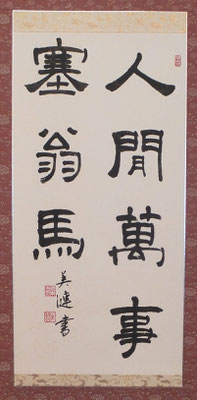 人間萬事
塞翁馬
美漣書